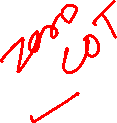 zero
COT